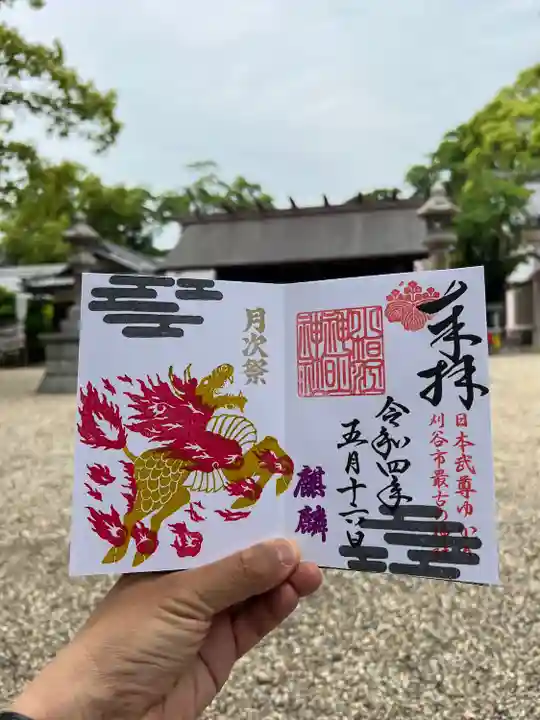 奉拝
日本武尊ゆ
刈谷市最古の
令和四年
五月十六日
月次祭
麒麟